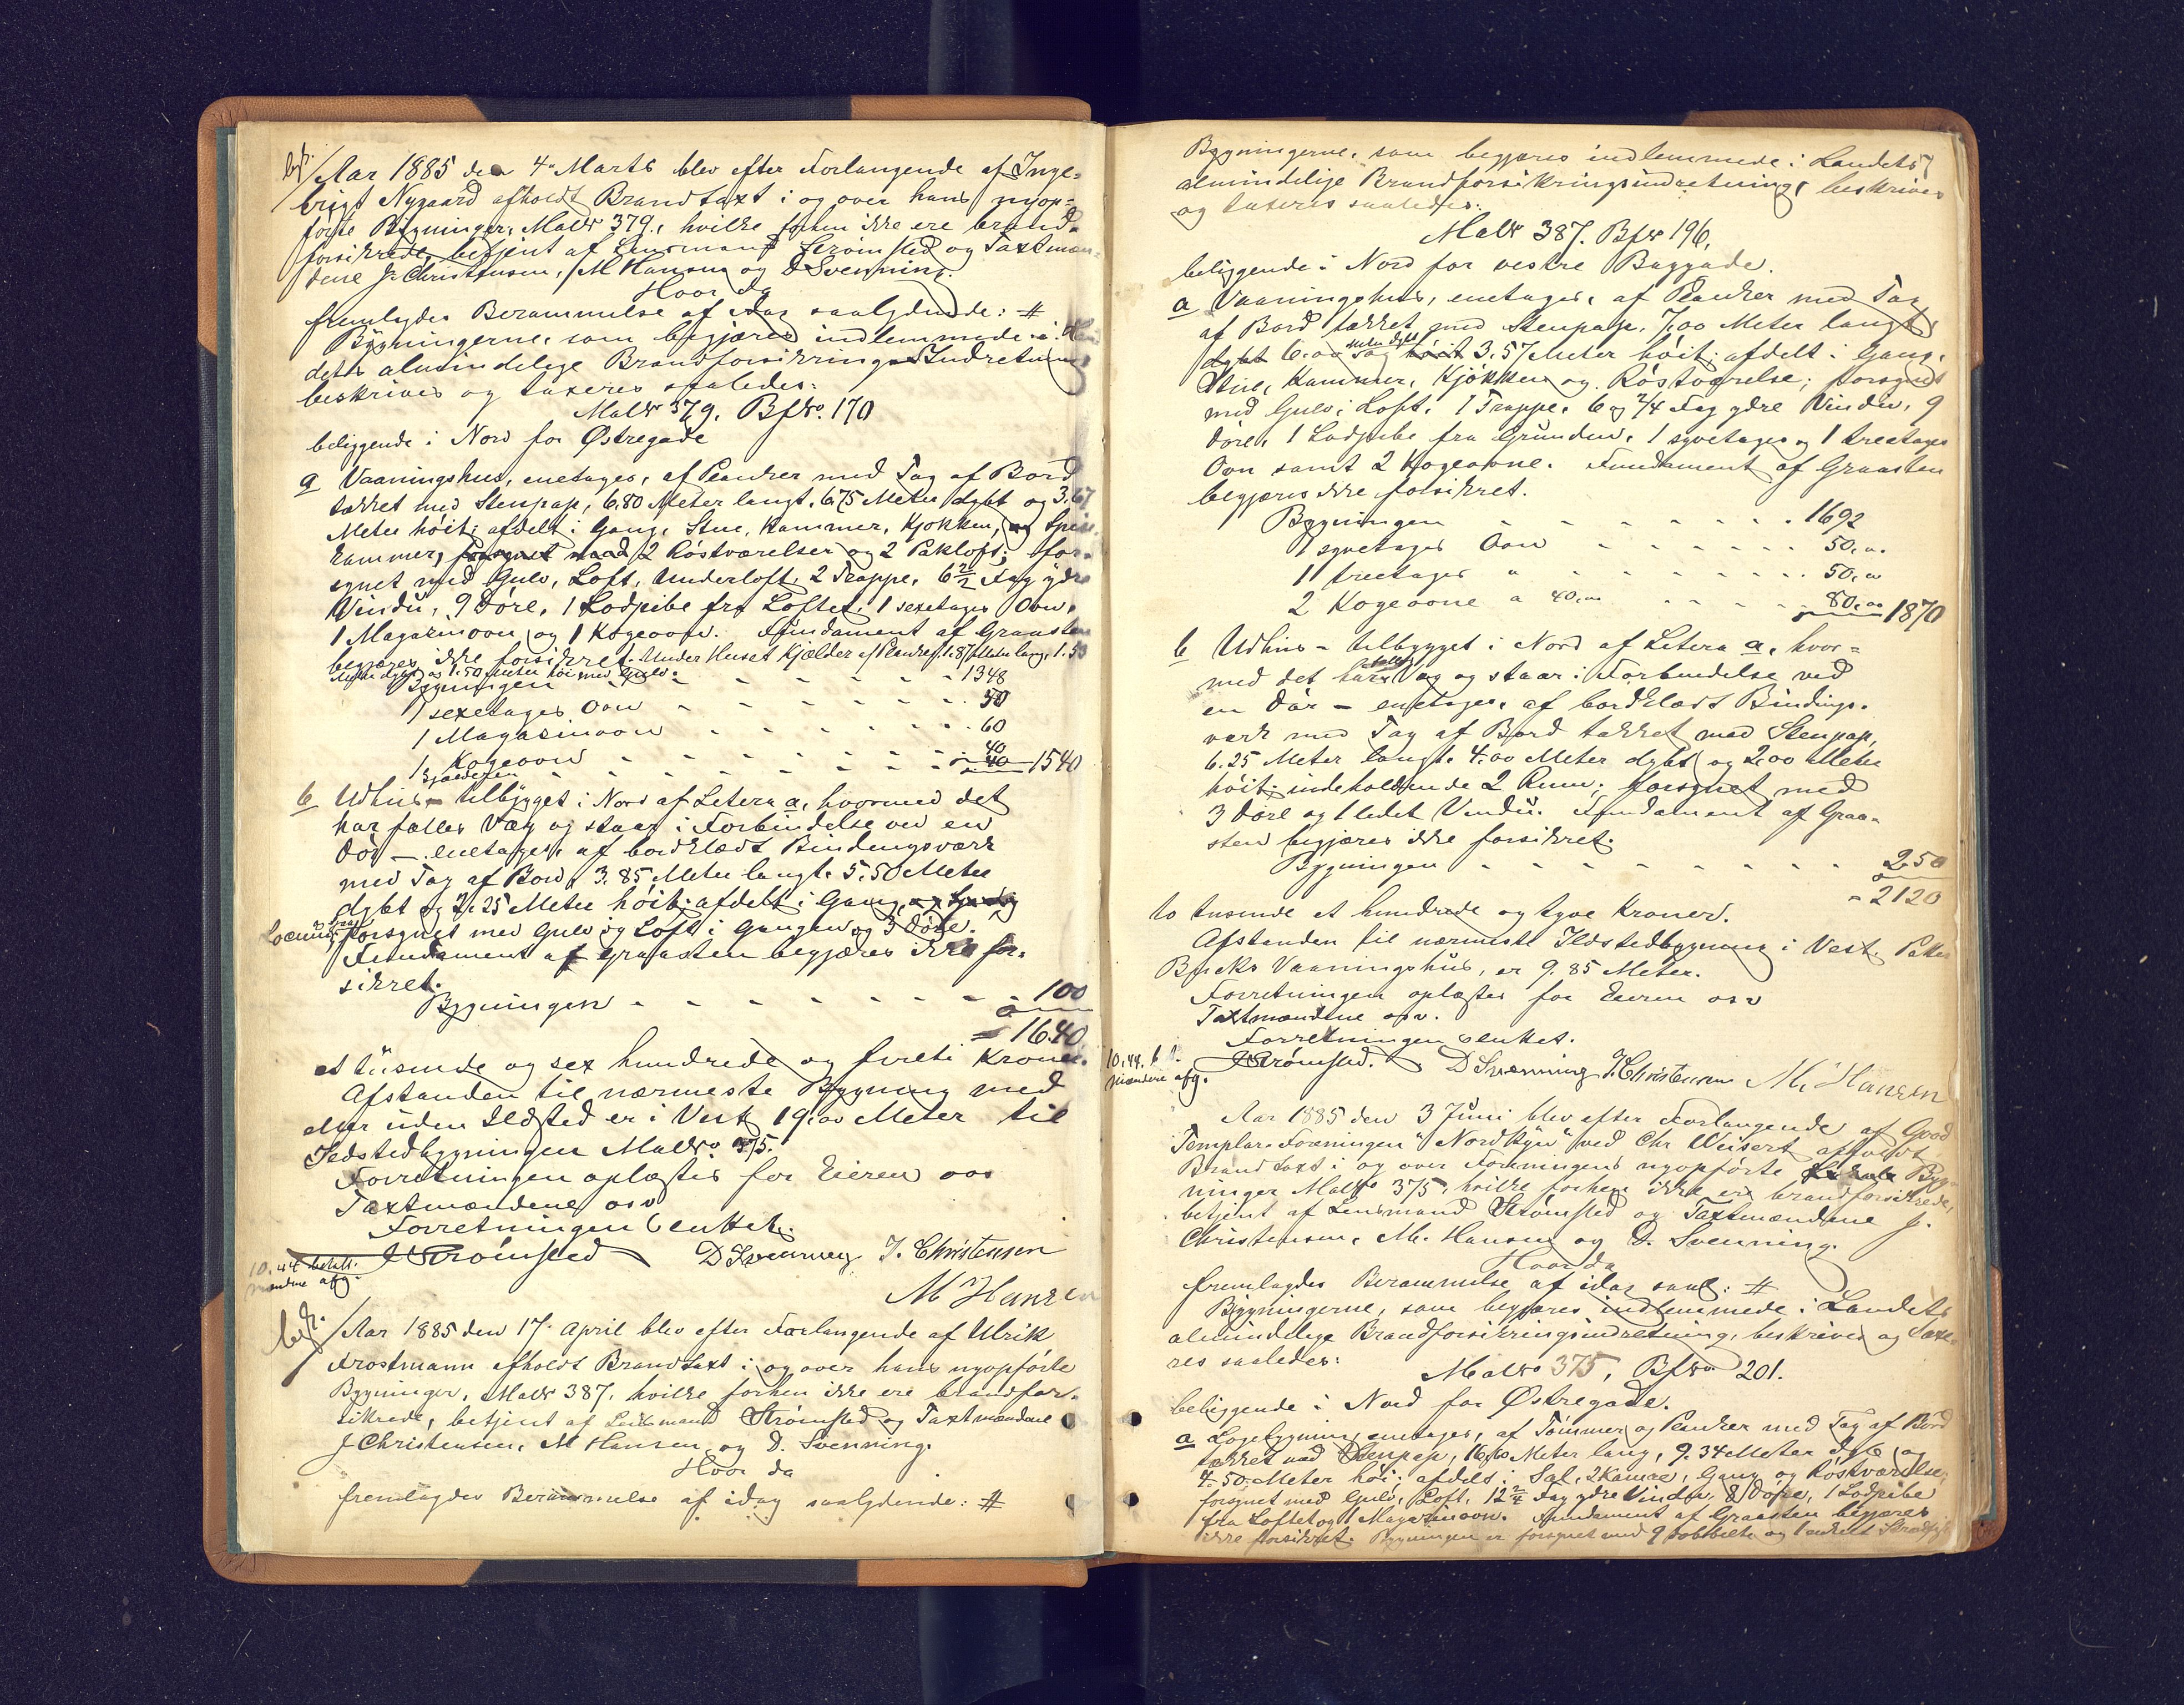 Aar 1885 den 4. Marts blev efter Forlangende af Inge-
brigt Nygaard afholdt Brandtaxt i og over hans nyop-
førte Bygninger, Matr 379, hvilke forhen ikke ere brand-
forsikrede, betjent af Lensmand Strømsted og Taxtmæn-
dene J. Christensen, M Hansen og D Svenning.
Hvor da
fremlagdes Berammelse af idag saalydende: #
Bygningerne, som begjæres indlemmede i Lan
dets almindelige Brandforsikrings-Indretning
beskrives og taxeres saaledes:
Matr 379. Bfno. 170
beliggende i Nord for Østregade
a Vaaningshus, enetages, af Planker med Tag af Bord
tækket med Stenpap, 6,80 Meter langt, 6,75 Meter dybt og 3,67
Meter høit; afdelt i Gang, Stue, Kammer, Kjøkken, og Spise-
kammer, forsynet med 2 Røstværelser og 2 Pakloft; for-
synet med Gulv, Loft, Underloft, 2 Trappe, 6 2/2 Fag ydre
Vindu, 9 Døre, 1 Lodpibe fra Loftet, 1 sexetages Ovn,
1 Magazinovn og 1 Kogeovn. Fundament af Graasten
begjæres ikke forsikret. Under Huset Kjælder af Planker, 1.87 Meter lang, 1.53
Meter dybt og 1.50 Meter høi med Gulv.
Bygningen - - - - 1348
1 sexetages Ovn - - - - 50
1 Magazinovn - - - - 60
1 Kogeovn - - - - 40
Kjælderen - - - - 40 1540
b Udhus - tilbygget i Nord af Litera a, hvormed det
har fælles Væg og staar i Forbindelse ved en
Dør - enetages, af bordklædt Bindingsværk
med Tag af Bord, 3.85 Meter langt, 5.50 Meter
dybt og 2.25 Meter høit; afdelt i Gang,
forsynet med Gulv og Loft i Gangen og 3 Døre.
Fundament af Graasten begjæres ikke for-
sikret.
Bygningen - - - - 100
= 1640
et tusinde og sex hundrede og firti Kroner.
Afstanden til nærmeste Bygning med
eller uden Ildsted er i Vest 19.00 Meter til
Ildstedbygningen Matr. 375.
Forretningen oplæstes for Eieren osv
Taxtmændene osv
Forretningen sluttet.
10.44 betalt.
mændene afg.
J Strømsted D Svenning J. Christensen
M Hansen
Aar 1885 den 17. April blev efter Forlangende af Ulrik
Frostmann afholdt Brandtaxt i og over hans nyopførte
Bygninger, Matr 387, hvilke forhen ikke ere brandfor-
sikrede, betjent af Lensmand Strømsted og Taxtmændene
J Christensen, M Hansen og D. Svenning.
Hvor da
fremlagdes Berammelse af idag saalydende: #
Bygningerne, som begjæres indlemmede i Landets
almindelige Brandforsikringsindretning, beskrives
og taxeres saaledes:
Matr 387. Bfno 196,
beliggende i Nord for vestre Baggade.
a Vaaningshus, enetages, af Planker med Tag
af Bord tækket med Stenpap, 7,00 Meter langt,
dybt 6.00 Meter dybt og høit 3.57 Meter høit; afdelt i Gang,
Stue, Kammer, Kjøkken og Røstværelse; forsynet
med Gulv, Loft, 1 Trappe, 6 og 2/4 Fag ydre Vindu, 9
Døre, 1 Lodpibe fra Grunden, 1 syvetages og 1 treetages
Ovn samt 2 Kogeovne. Fundament af Graasten
begjæres ikke forsikret.
Bygningen - - - - 1692
1 syvetages Ovn - - - - 50,00
1 treetages " - - - - 50,00
2 Kogeovne a 40,00 - - - - 80,00 1870
b Udhus - tilbygget i Nord af Litera a, hvor-
med det har fælles Væg og staar i Forbindelse ved
en Dør - enetages, af bordklædt Bindings-
værk med Tag af Bord tækket med Stenpap,
6.25 Meter langt, 4.00 Meter dybt og 2,00 Meter
høit; indeholdende 2 Rum; forsynet med
3 Døre og 1 ledet Vindu. Fundament af Graa-
sten begjæres ikke forsikret.
Bygningen - - - - 250
= 2120
to tusinde et hundrede og tyve Kroner.
Afstanden til nærmeste Ildstedbygning i Vest,
Bucks Vaaningshus, er 9.85 Meter.
Forretningen oplæstes for Eieren osv
Taxtmændene osv.
Forretningen sluttet.
10.44. b
mændene afg.
J Strømsted. D Svenning J. Christensen M. Hansen
Aar 1885 den 3 Juni blev efter Forlangende af Good
Templar-Foreningen "Nordkyn" ved Chr Weisert afholdt
Brandtaxt i og over Foreningens nyopførte Byg-
ninger Matr 375, hvilke forhen ikke ere brandforsikrede,
betjent af Lensmand Strømsted og Taxtmændene J.
Christensen, M. Hansen og D. Svenning.
Hvor da
fremlagdes Berammelse af idag saal: #
Bygningerne, som begjæres indlemmede i Landets
almindelige Brandforsikringsindretning, beskrives og taxe-
res saaledes:
Matr 375, Bfno 201.
beliggende i Nord for Østregade.
a Logebygning, enetages, af Tømmer og Planker med Tag af Bord
tækket med Stenpap, Meter lang, 9.34 Meter dyb og
4.50 Meter høi; afdelt i Sal, 2 Kamre, Gang og Røstværelse;
forsynet med Gulv, Loft, 12 2/4 Fag ydre Vindu, 8 Døre, 1 Lodpibe
fra Loftet og 1 Magazinovn. Fundament af Graasten begjæres
ikke forsikret. Bygningen er forsynet med 9 dobbelte og 1 enkelt